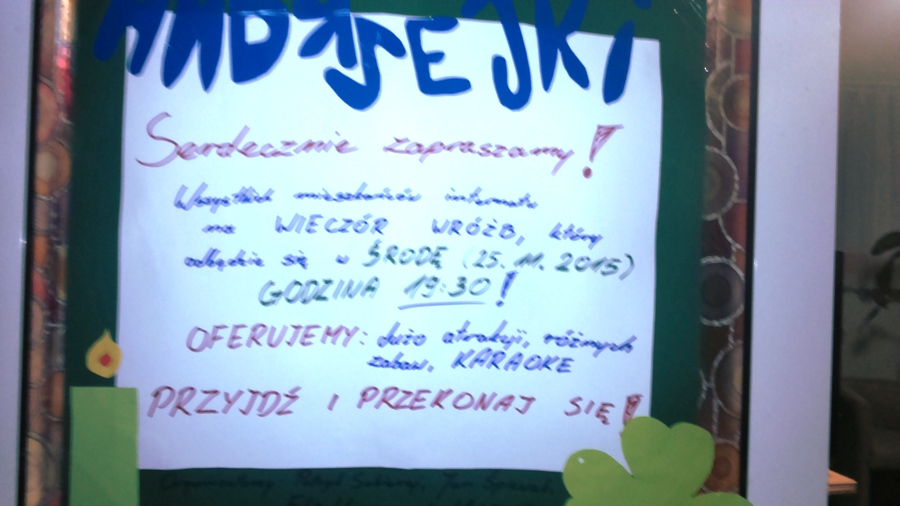 ANDRZEJKI
Serdecznie zapraszamy!
Wszystkich mieszkańców internatu
na WIECZÓR WRÓŻB, który
odbędzie się w ŚRODĘ (25.11.2015)
GODZINA 19:30!
OFERUJEMY: dużo atrakcji, różnych
zabaw, KARAOKE
PRZYJDŹ I PRZEKONAJ SIĘ!
Organizatorzy